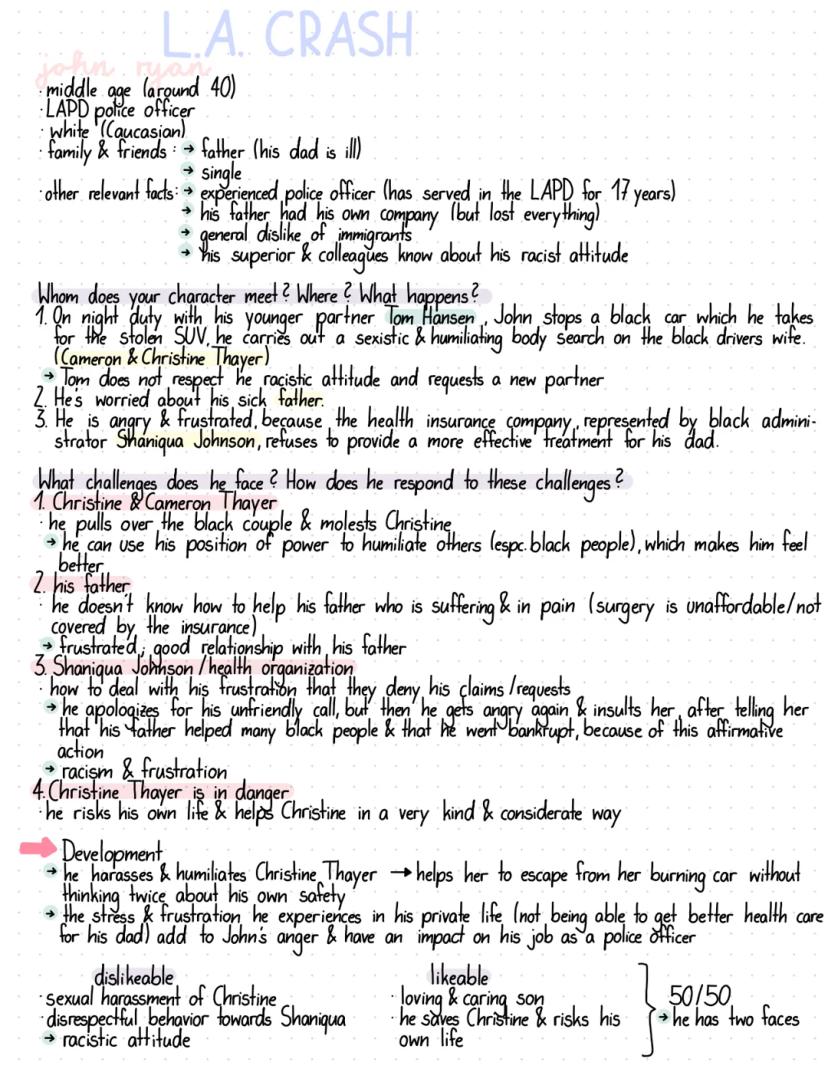 L.A. CRASH
john ryan
· middle age (around 40)
· LAPD police officer
· white (Caucasian)
· family & friends : → father (his dad is ill)
→ single
· other relevant facts: → experienced police officer (has served in the LAPD for 17 years)
→ his father had his own company (but lost everything)
→ general dislike of immigrants
→ his superior & colleagues know about his racist attitude
Whom does your character meet? Where? What happens?
1. On night duty with his younger partner Tom Hansen, John stops a black car which he takes
for the stolen SUV, he carries out a sexistic & humiliating body search on the black drivers wife.
(Cameron & Christine Thayer)
→ Tom does not respect he racistic attitude and requests a new partner
2. He's worried about his sick father.
3. He is angry & frustrated, because the health insurance company, represented by black admini-
strator Shaniqua Johnson, refuses to provide a more effective treatment for his dad.
What challenges does he face? How does he respond to these challenges?
1. Christine & Cameron Thayer
· he pulls over the black couple & molests Christine
→ he can use his position of power to humiliate others (espc. black people), which makes him feel
better
2. his father
· he doesn't know how to help his father who is suffering & in pain (surgery is unaffordable/not
covered by the insurance)
→ frustrated; good relationship with his father
3. Shaniqua Johnson/health organization
· how to deal with his frustration that they deny his claims/requests
→ he apologizes for his unfriendly call, but then he gets angry again & insults her, after telling her
that his father helped many black people & that he went bankrupt, because of this affirmative
action
→ racism & frustration
4. Christine Thayer is in danger
· he risks his own life & helps Christine in a very kind & considerate way
→ Development
→ he harasses & humiliates Christine Thayer → helps her to escape from her burning car without
thinking twice about his own safety
→ the stress & frustration he experiences in his private life (not being able to get better health care
for his dad) add to John's anger & have an impact on his job as a police officer
dislikeable
· sexual harassment of Christine
· disrespectful behavior towards Shaniqua
→ racistic attitude
likeable
· loving & caring son
· he saves Christine & risks his
own life
50/50
→ he has two faces